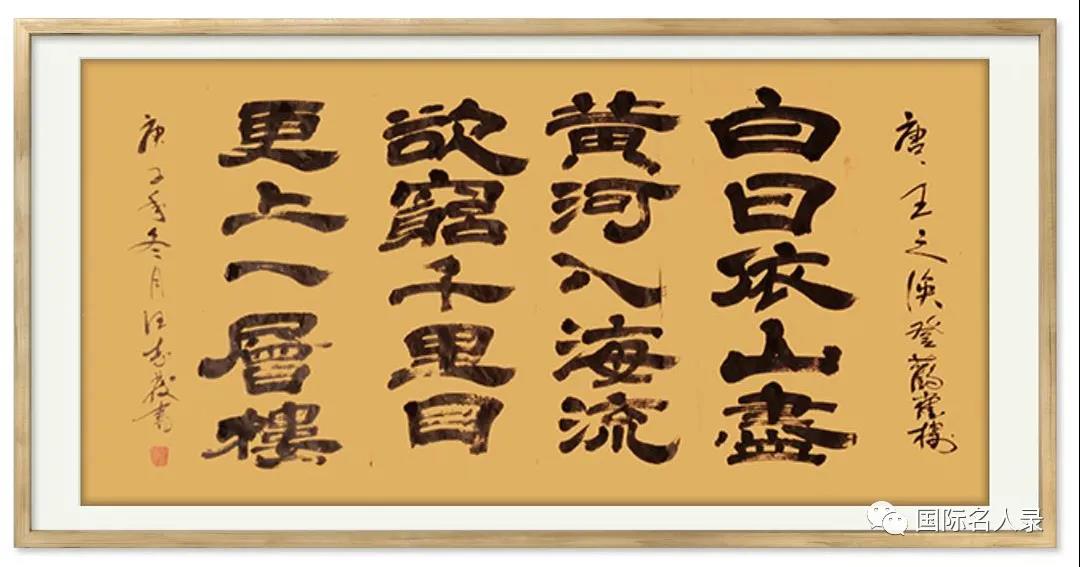 唐、王之渙登鸛雀樓
白日依山盡
黃河入海流
欲窮千里目
更上一層樓
庚子年冬月 書
国际名人录